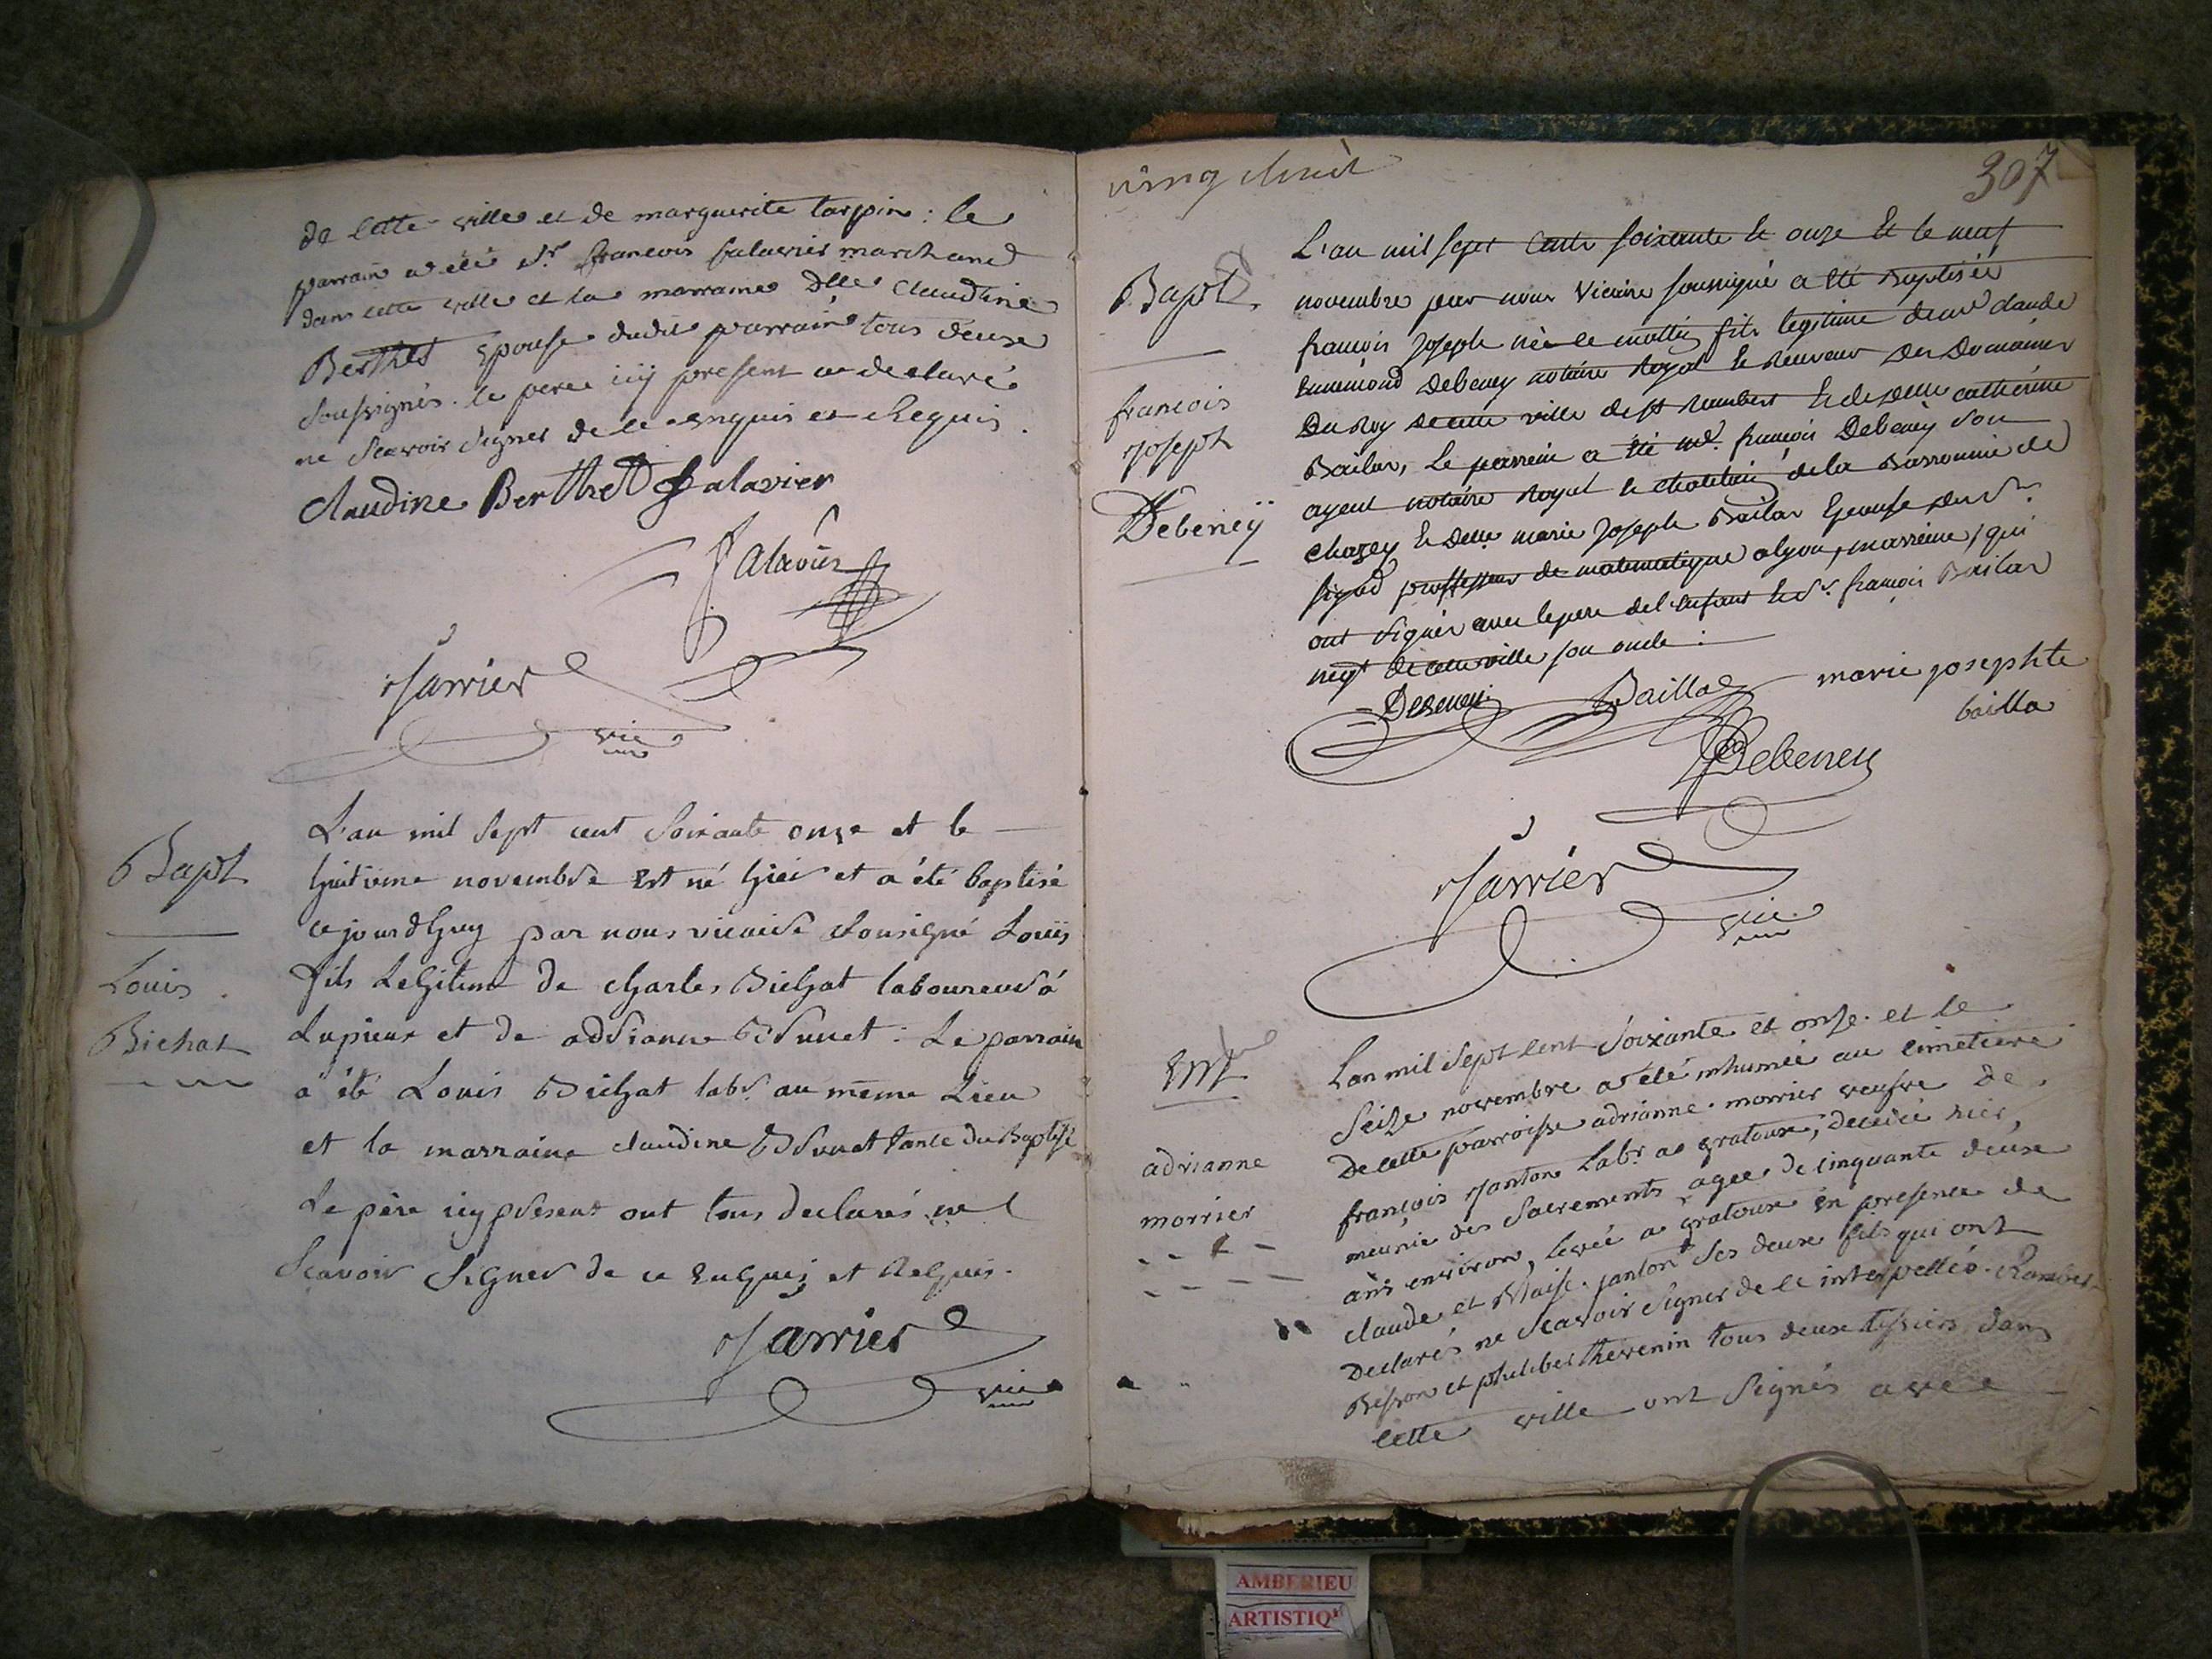 de cette ville et de marguerite tarpin : le
parrain a été Sr françois salavier marchand
dans cette ville et la marraine Dlle Claudine
Berthet Epouse dudit parrain tous deux
soussignés. le pere icy present a declaré
ne Scavoir Signer de ce enquis et Requis.
Claudine Berthet Salavier
Salavier
Jarrier
vic
Bapt
Louis
Bichat
L'an mil Sept cent Soixante onze et le
huitieme novembre est né hier et a été baptisé
cejourdhuy par nous vicaire Sousigné Louis
fils Legitime de charles Bichat laboureur à
Lupieux et de adrianne Brunet : Le parrain
a été Louis Bichat labr. au même Lieu
et la marraine claudine Brunet tante du Baptisé
Le père icy présent ont tous declarés ne
Scavoir Signer de ce Enquis et Requis.
Jarrier
vic
vingt huit
307
Bapt
francois
joseph
Debeneÿ
L'an mil sept cents soixante et onze et le neuf
novembre par nous Vicaire soussigné a été Baptisée
francois Joseph né ce matin fils legitime de me claude
raimond Debeney notaire Royal et receveur des Domaines
Du Roy de cette ville de st Rambert et de delle catherine
Bailar, Le parrein a été me. françois Debeney son
ayeul notaire Royal et chatelain de la Baronnie de
chazey et delle marie Joseph Bailar Epouse du sr.
professeur de matematique a lyon, marreine, qui
ont signés avec le pere de l'enfant et sr. françois Bailar
negt de cette ville son oncle :
Debeney
Baillar
marie josephte
bailla
Debeney
Jarrier
vic
Ent
adrianne
morrier
Lan mil Sept cent Soixante et onze et le
Seize novembre a été inhumée au cimetiere
De cette parroisse adrianne morrier veufve de
françois janton Labr. a gratoux, decedée hier,
meunie des Sacrements agee de cinquante deux
ans environ, levée a gratoux en presence de
claude et Blaise janton Ses deux fils qui ont
Declarés ne Scavoir Signer de ce interpellés. Rambert
Besson et philibert thevenin tous deux tissiers dans
cette ville ont Signés avec
AMBERIEU
ARTISTIQ